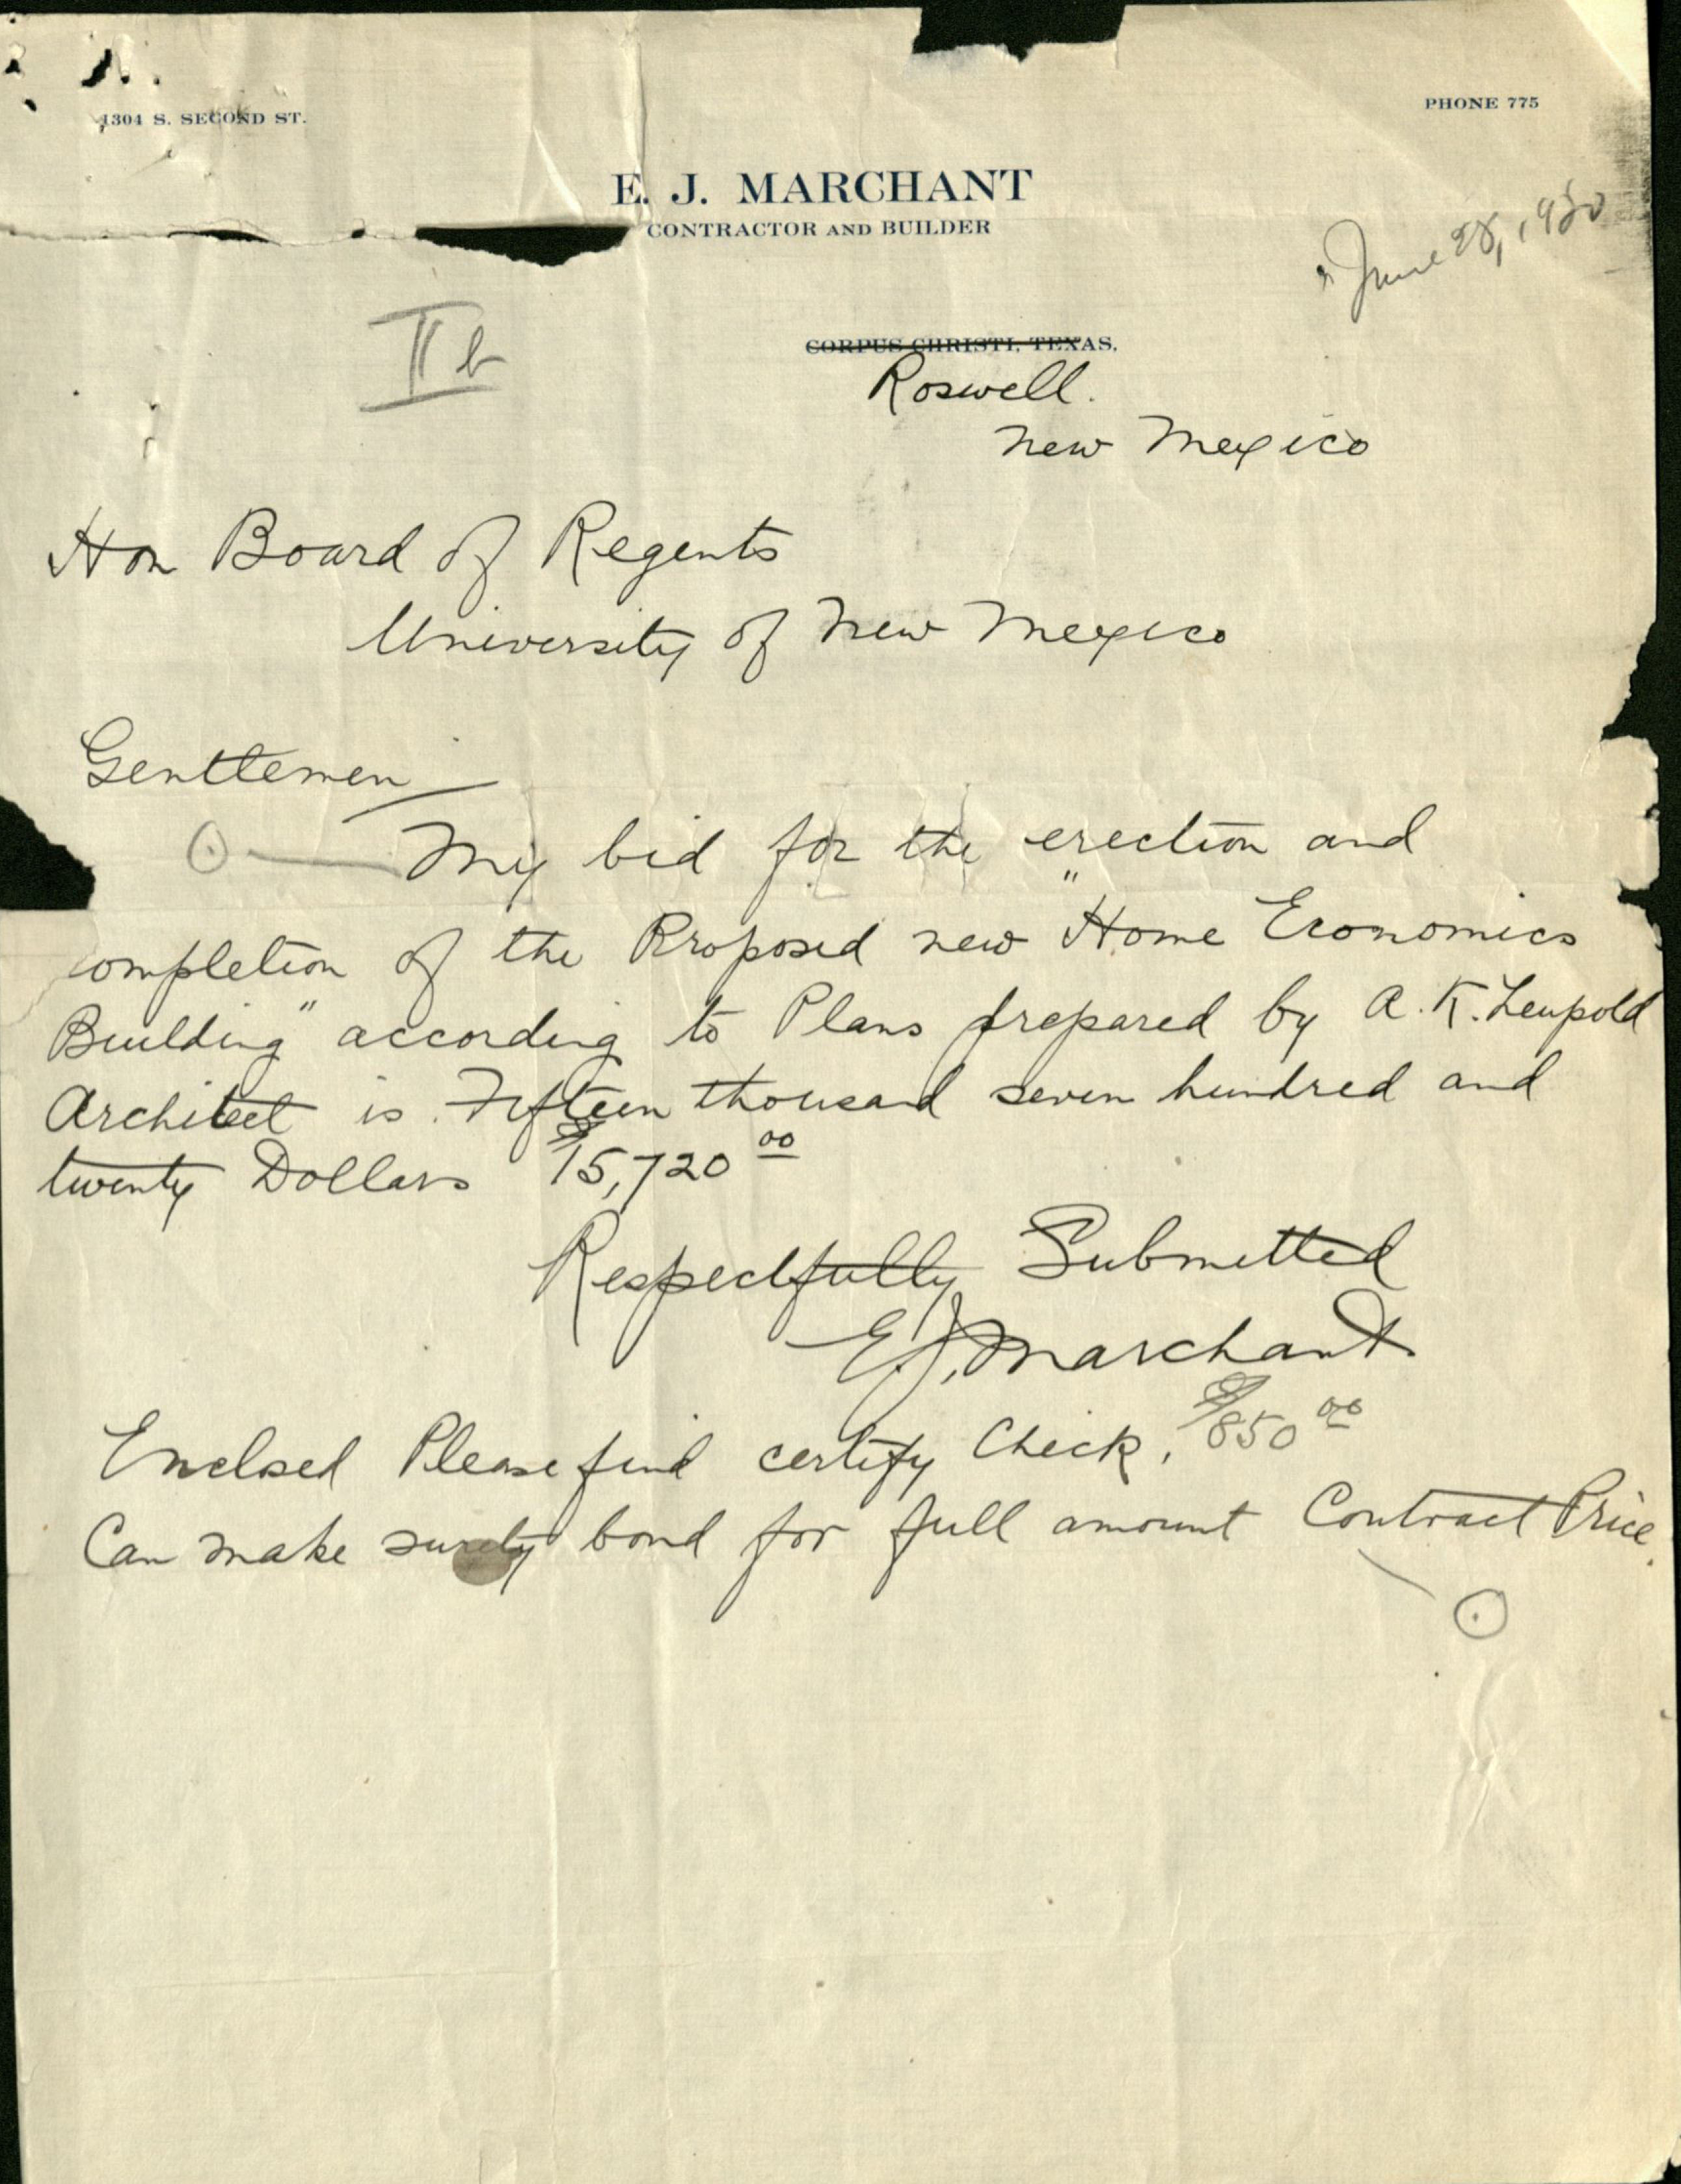 1304 S. SECOND ST.
PHONE 775
E. J. MARCHANT
CONTRACTOR AND BUILDER
June 28, 1920
II b
CORPUS CHRISTI, TEXAS.
Roswell.
New Mexico
Hon Board of Regents
University of New Mexico
Gentlemen
My bid for the erection and
completion of the Proposed new "Home Economics
Building" according to Plans prepared by A. K. Leupold
Architect is Fifteen thousand seven hundred and
twenty Dollars $15,720 00
Respectfully Submitted
E. J. Marchant
Enclosed Please find certify Check, $850 00
Can make surety bond for full amount Contract Price.